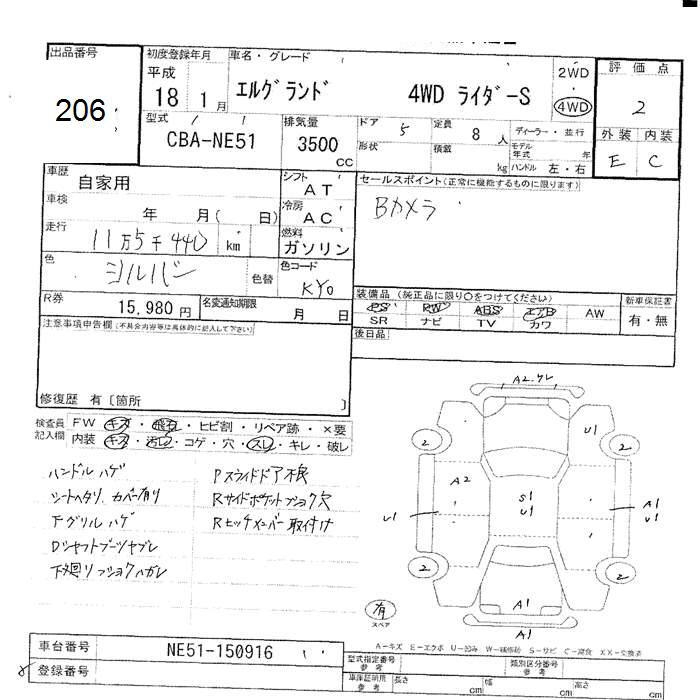 出品番号
206
初度登録年月
平成
18 1月
車名・グレード
エルグランド 4WD ライダーS
2WD
4WD
評価点
2
外装 内装
E C
型式
CBA-NE51
排気量
3500 CC
ドア 5
形状
定員 8人
積載 kg
ディーラー・並行
モデル年式 年
ハンドル 左・右
車歴
自家用
車検
年 月( 日)
走行
11万5千440 km
色
シルバー
色替
シフト AT
冷房 AC
燃料
ガソリン
色コード
KY0
R券
15,980円
名変通知期限
月 日
セールスポイント(正常に機能するものに限ります)
Bカメラ
装備品 (純正品に限り○をつけてください)
PS PW ABS エアB AW
SR ナビ TV カワ
新車保証書
有・無
後日品
注意事項申告欄(不具合内容等は具体的に記入して下さい)
修復歴 有〔箇所 〕
検査員記入欄
FW キズ・飛石・ヒビ割・リペア跡・×要
内装 キズ・汚レ・コゲ・穴・スレ・キレ・破レ
ハンドルハゲ
シートヘタリ、カバー有り
Fグリルハゲ
Dシャフトブーツヤブレ
下廻りフショクハガレ
Pスライドドア不良
Rサイドポケットフショク穴
Rヒッチメンバー取付け
A2.サレ
U1
2 2
A2
S1
U1
U1
A1
U1
2 2
A1
A1
有
スペア
A-キズ E-エクボ U-凹み W-補修跡 S-サビ C-腐食 XX-交換済
車台番号
NE51-150916
登録番号
型式指定番号
参考
類別区分番号
参考
車庫証明用
参考
長さ cm
幅 cm
高さ cm